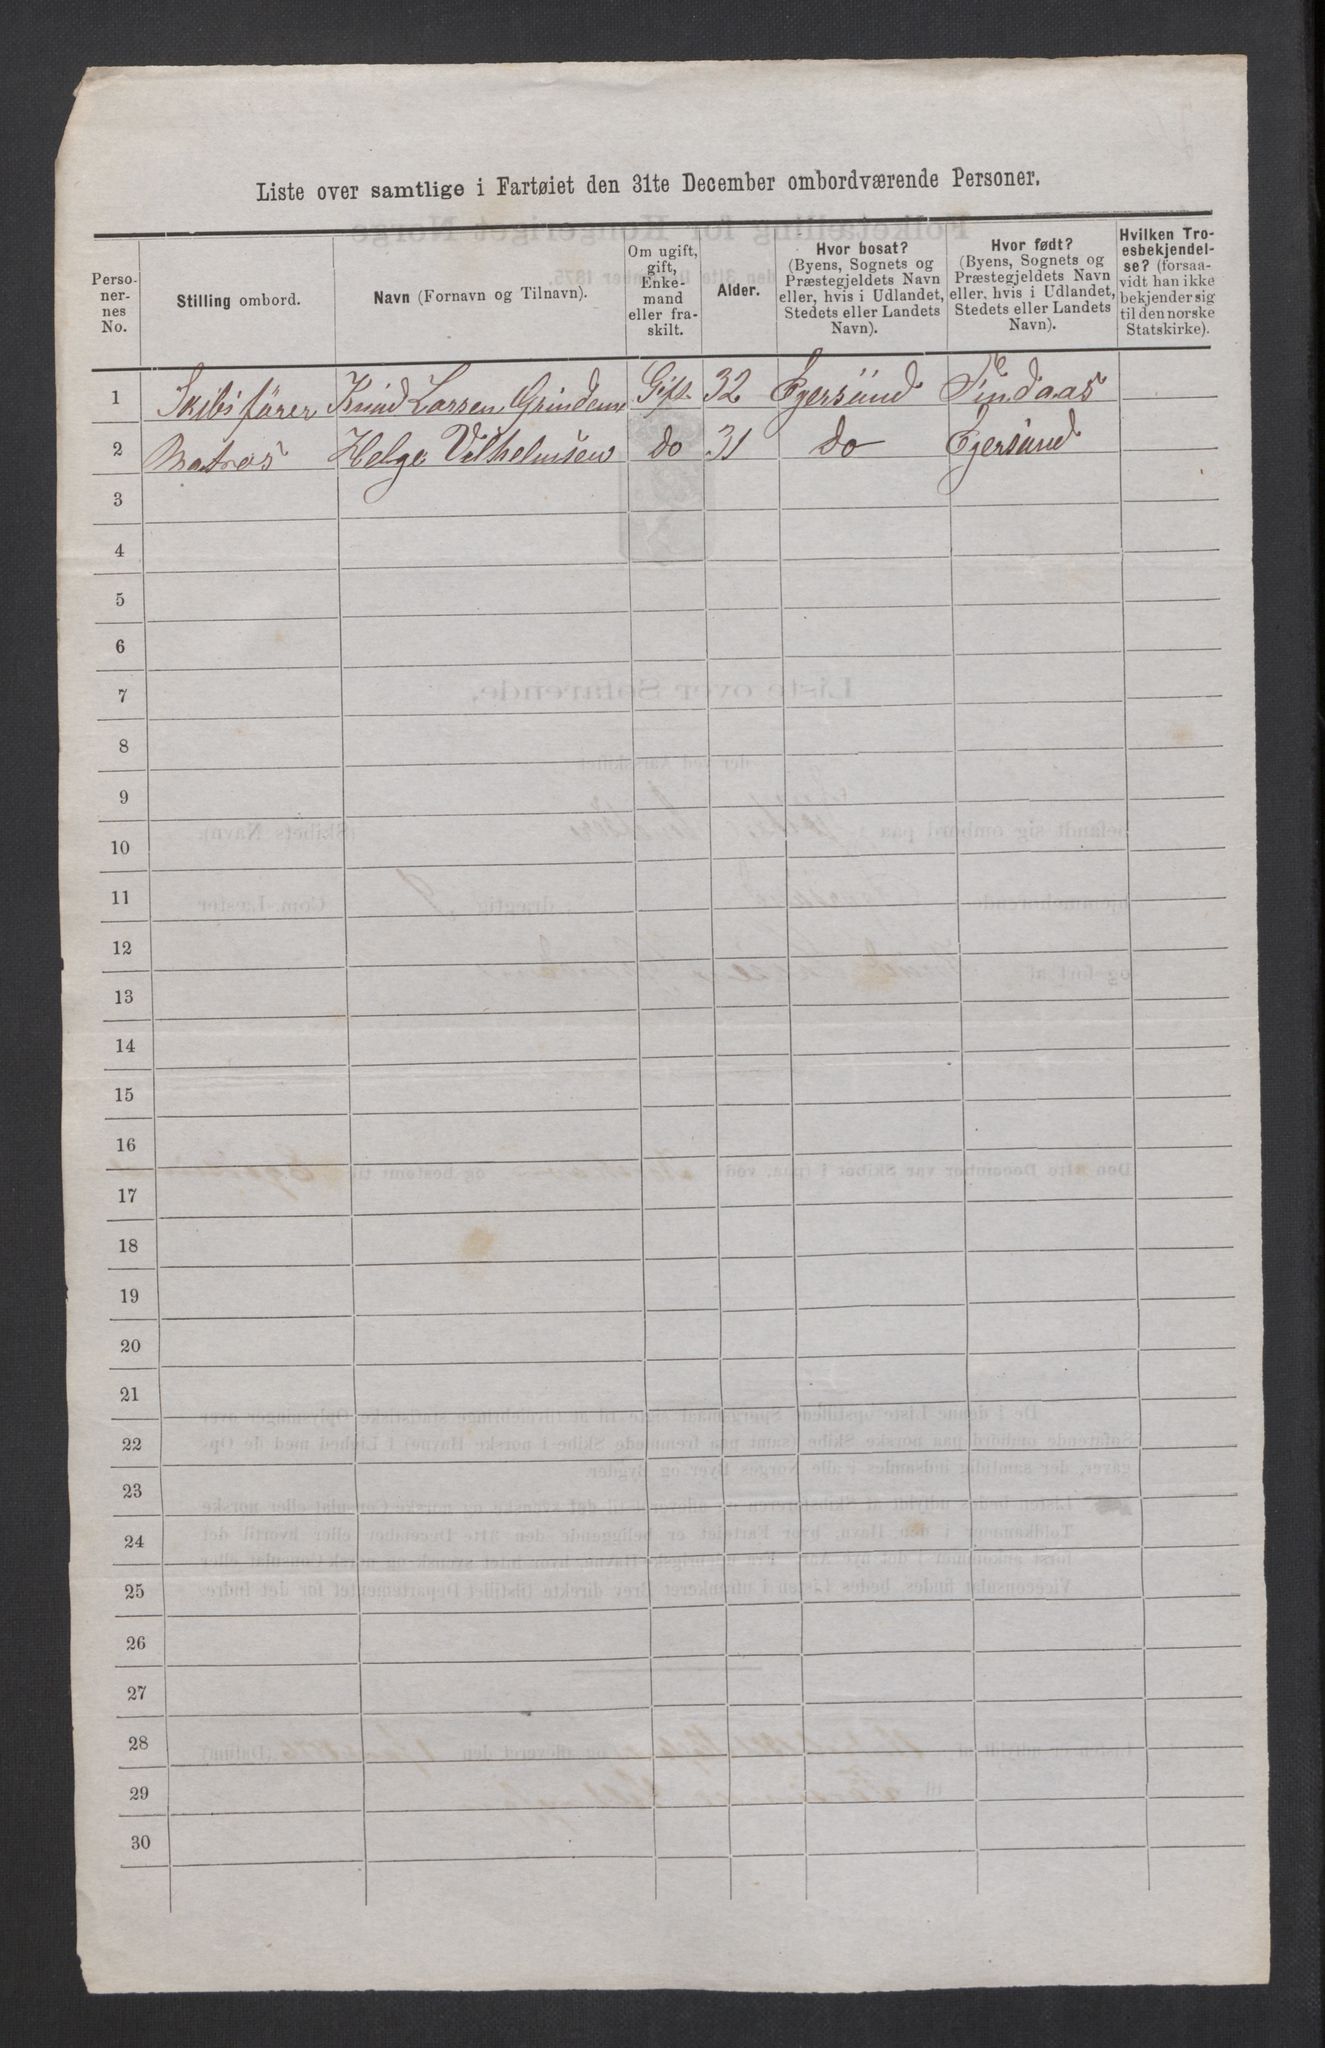 Liste over samtlige i Fartøiet den 31te December ombordværende Personer.
Perso-
ner-
nes
No.
Stilling ombord.
Navn (Fornavn og Tilnavn).
Om ugift,
gift,
Enke-
mand
eller fra-
skilt.
Alder.
Hvor bosat?
(Byens, Sognets og
Præstegjeldets Navn
eller, hvis i Udlandet,
Stedets eller Landets
Navn).
Hvor født?
(Byens, Sognets og
Præstegjeldets Navn
eller, hvis i Udlandet,
Stedets eller Landets
Navn).
Hvilken Tro-
esbekjendel-
se? (forsaa-
vidt han ikke
bekjender sig
til den norske
Statskirke).
1 Skibsfører Knud Larsen Gift 32 Egersund
2 Matros Helge Vilhelmsen do 31 do Egersund
3
4
5
6
7
8
9
10
11
12
13
14
15
16
17
18
19
20
21
22
23
24
25
26
27
28
29
30